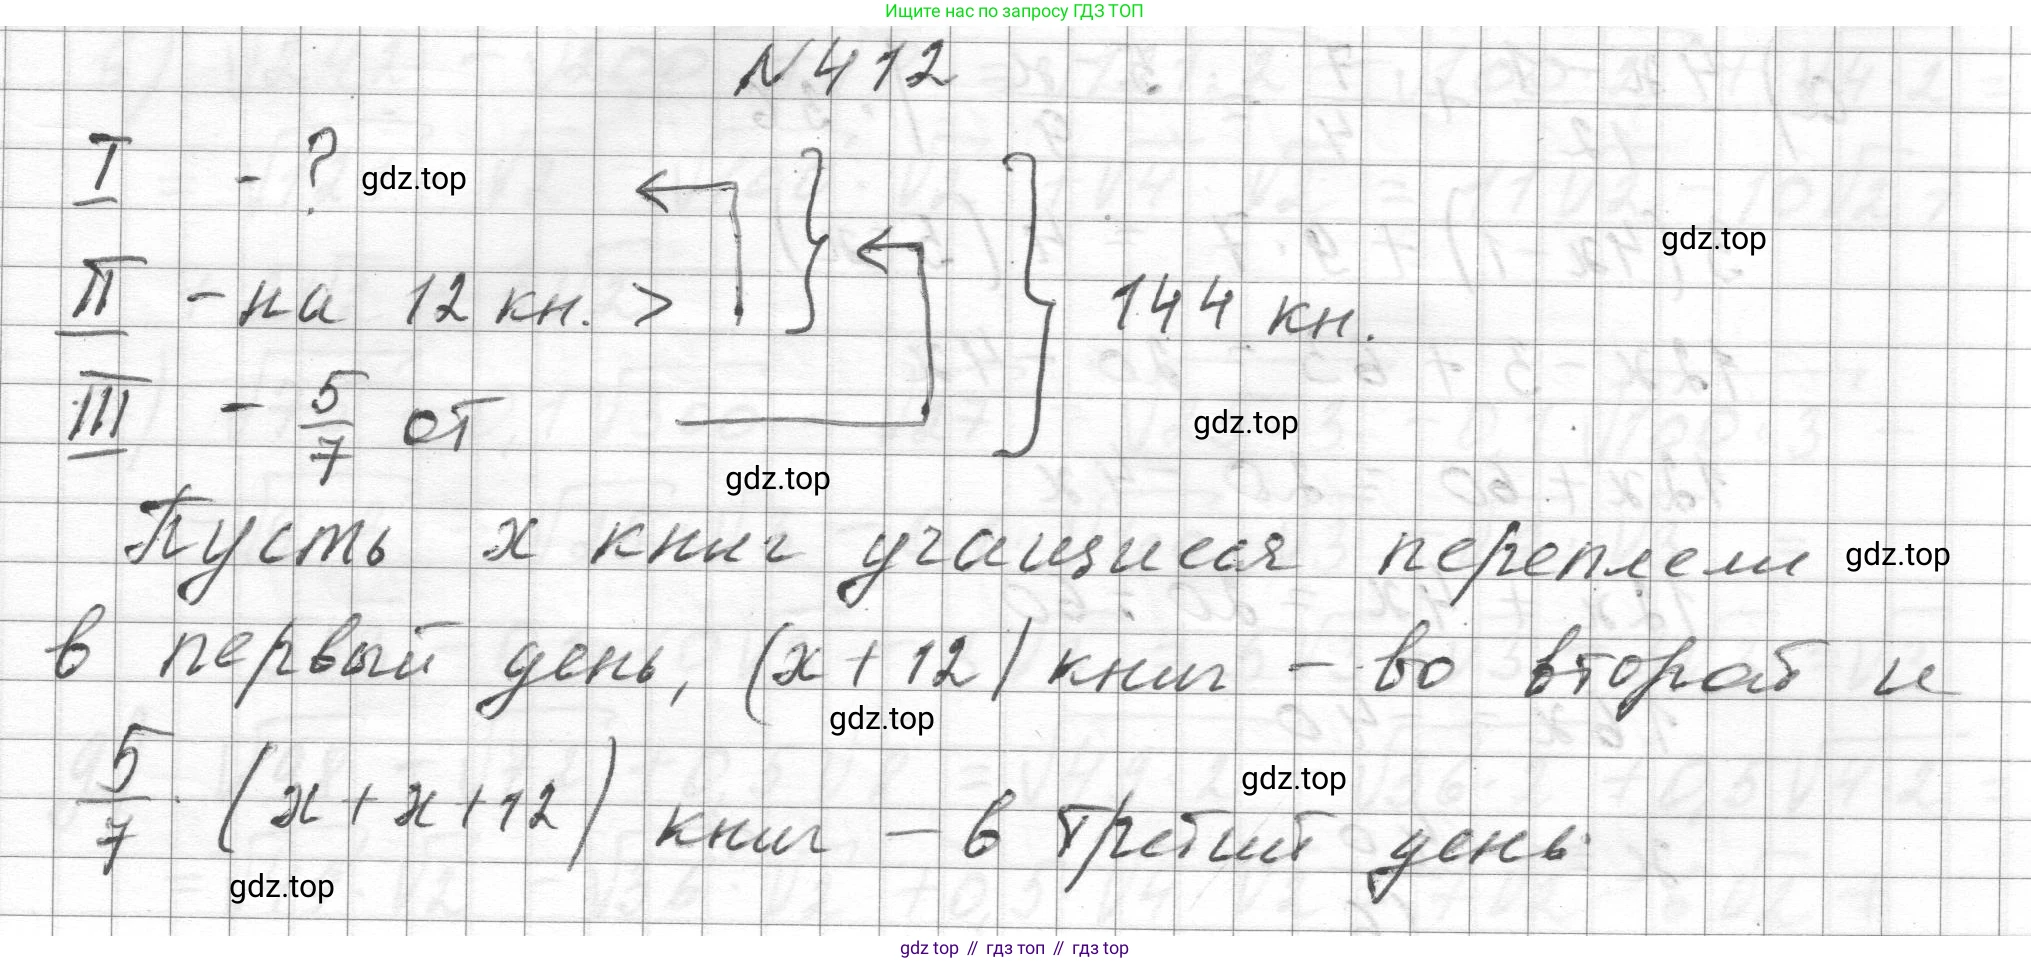 Ищите нас по запросу ГДЗ ТОП
N 412
I - ? gdz.top
gdz.top
II - на 12 кн. > 144 кн.
III - 5/7 от gdz.top
gdz.top
Пусть x книг учащиеся переплели gdz.top
в первый день, (x + 12) книг - во второй и
gdz.top
5/7 · (x + x + 12) книг - в третий день.
gdz.top
gdz.top
gdz top // гдз топ // гдз top